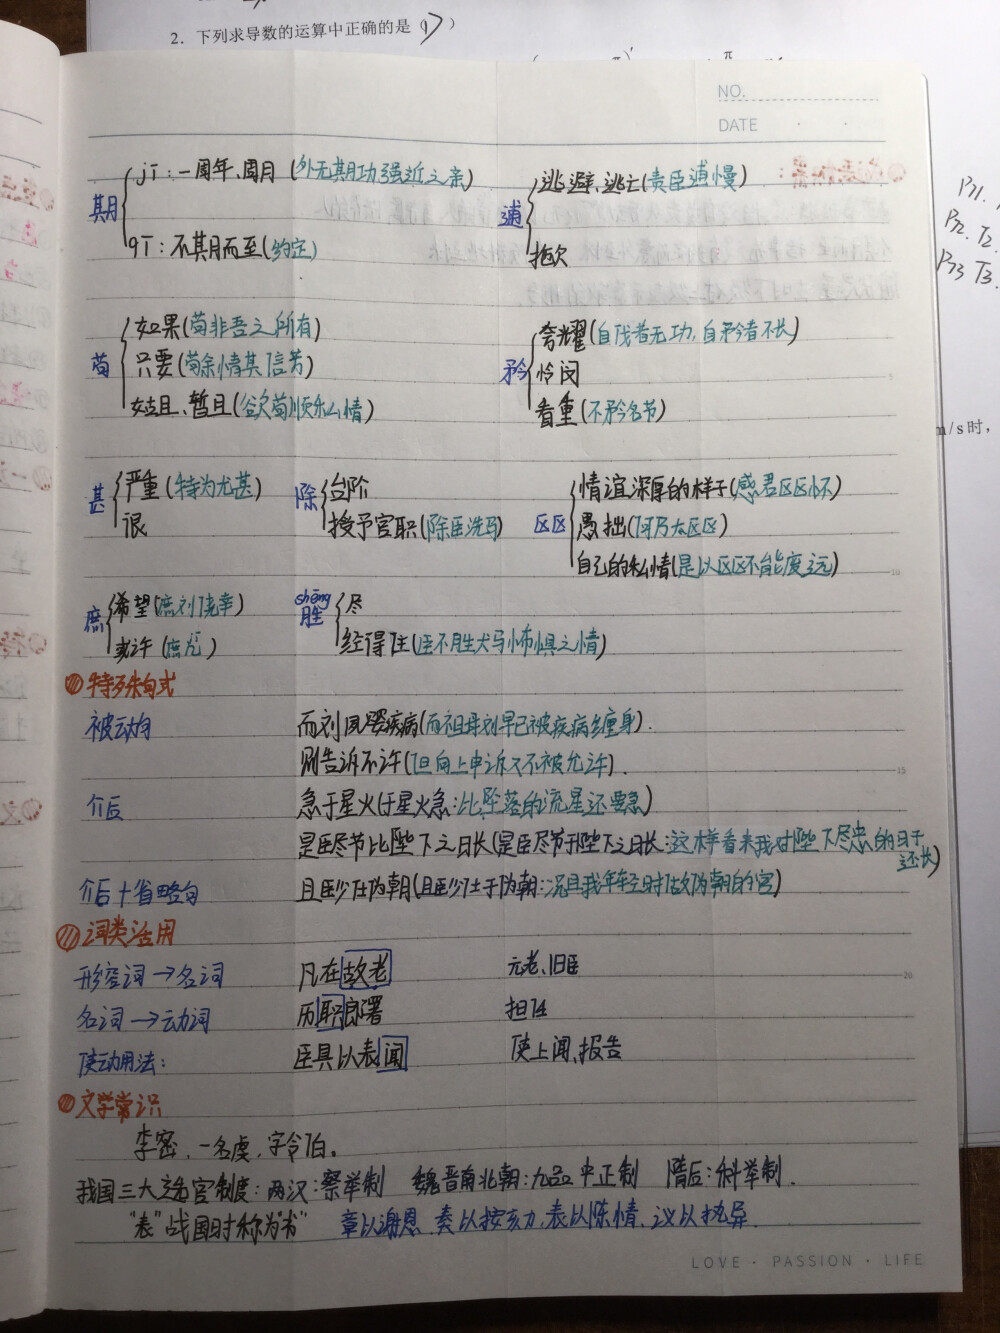 2. 下列求导数的运算中正确的是（ ）
NO.
DATE
期 jī：一周年、周月（外无期功强近之亲）
qī：不期而至（约定）
逋 逃避、逃亡（责臣逋慢）
拖欠
苟 如果（苟非吾之所有）
只要（苟余情其信芳）
姑且、暂且（欲苟顺私情）
矜 夸耀（自伐者无功，自矜者不长）
怜闵
看重（不矜名节）
甚 严重（特为尤甚）
很
除 台阶
授予官职（除臣洗马）
区区 情谊深厚的样子（感君区区怀）
愚拙（何乃太区区）
自己的私情（是以区区不能废远）
庶 希望（庶刘侥幸）
或许（庶兀）
shēng 胜 尽
经得住（臣不胜犬马怖惧之情）
特殊句式
被动句 而刘夙婴疾病（而祖母刘早已被疾病缠身）.
则告诉不许（但向上申诉又不被允许）.
介后 急于星火（于星火急：比坠落的流星还要急）
是臣尽节比陛下之日长（是臣尽节于陛下之日长：这样看来我对陛下尽忠的日子还长）
介后+省略句 且臣少仕伪朝（且臣少仕于伪朝：况且我年轻时做伪朝的官）
词类活用
形容词→名词 凡在故老 元老、旧臣
名词→动词 历职郎署 担任
使动用法： 臣具以表闻 使上闻、报告
文学常识
李密，一名虔，字令伯。
我国三大选官制度：两汉：察举制 魏晋南北朝：九品中正制 隋后：科举制.
“表”战国时称为“书” 章以谢恩、奏以按劾、表以陈情、议以执异.
LOVE · PASSION · LIFE
P71.
P72. T2
P73 T3.
m/s时，
5
10
15
20